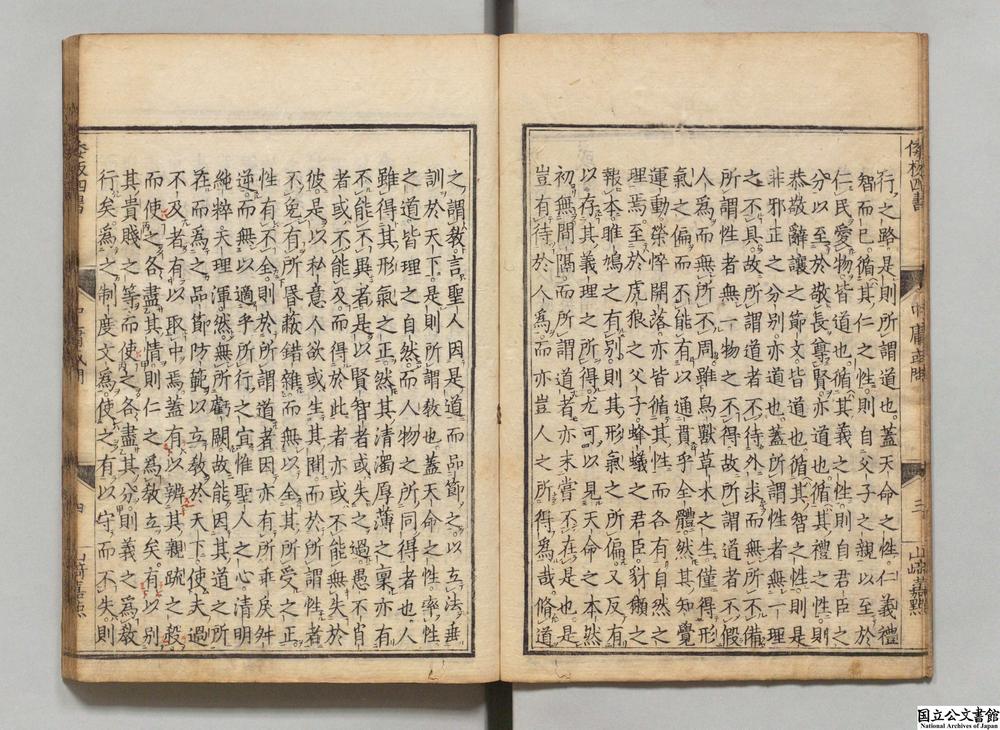 倭板四書 中庸或問 三 山崎嘉點
行之路是則所謂道也蓋天命之性仁義禮
智而已循其仁之性則自父子之親以至於
仁民愛物皆道也循其義之性則自君臣之
分以至於敬長尊賢亦道也循其禮之性則
恭敬辭讓之節文皆道也循其智之性則是
非邪正之分別亦道也蓋所謂性者無一理
之不具故所謂道者不待外求而無所不備
所謂性者無一物之不得故所謂道者不假
人爲而無所不周雖鳥獸草木之生僅得形
氣之偏而不能有以通貫乎全體然其知覺
運動榮悴開落亦皆循其性而各有自然之
理焉至於虎狼之父子蜂蟻之君臣豺獺之
報本雎鳩之有別則其形氣之所偏又反有
以存其義理之所得尤可以見天命之本然
初無間隔而所謂道者亦未嘗不在是也是
豈有待於人爲而亦豈人之所得爲哉脩道
之謂敎言聖人因是道而品節之以立法垂
訓於天下是則所謂敎也蓋天命之性率性
之道皆理之自然而人物之所同得者也人
雖得其形氣之正然其清濁厚薄之稟亦有
不能不異者是以賢智者或失之過愚不肖
者或不能及而得於此者亦或不能無失於
彼是以私意人欲或生其間而於所謂性者
不免有所昏蔽錯雜而無以全其所受之正
性有不全則於所謂道者因亦有所乖戾舛
逆而無以適乎所行之宜惟聖人之心清明
純粹天理渾然無所虧闕故能因其道之所
在而爲之品節防範以立敎於天下使夫過
不及者有以取中焉蓋有以辨其親疏之殺
而使之各盡其情則仁之爲敎立矣有以別
其貴賤之等而使之各盡其分則義之爲敎
行矣爲之制度文爲使之有以守而不失則
倭板四書 中庸或問 四 山崎嘉點
国立公文書館
National Archives of Japan